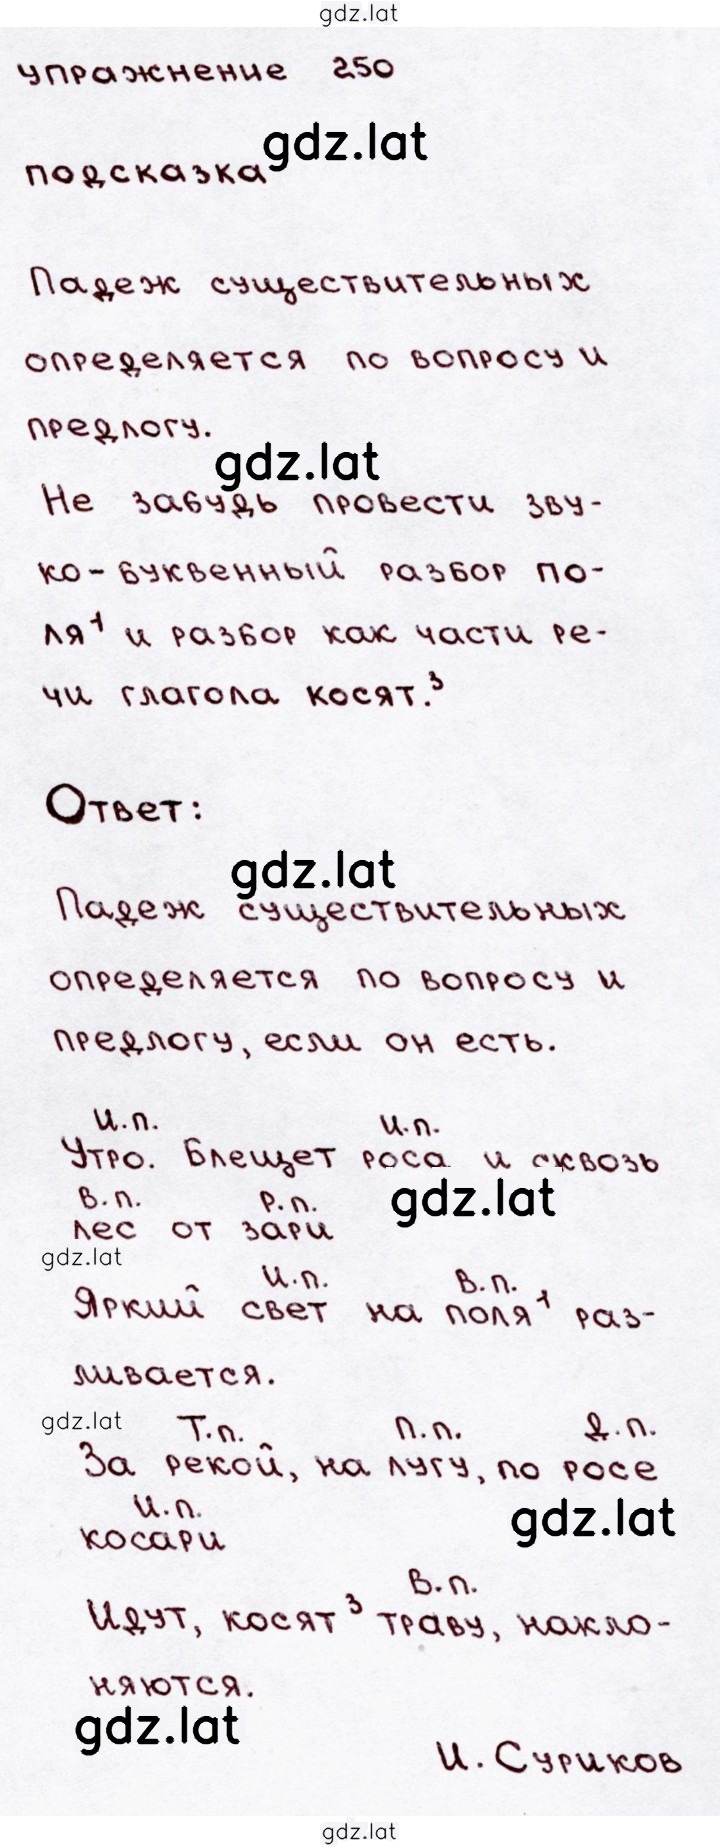 gdz.lat
упражнение 250
gdz.lat
подсказка
Падеж существительных
определяется по вопросу и
предлогу.
gdz.lat
Не забудь провести зву-
ко-буквенный разбор по-
ля¹ и разбор как части ре-
чи глагола косят.³
Ответ:
gdz.lat
Падеж существительных
определяется по вопросу и
предлогу, если он есть.
И.п. И.п.
Утро. Блещет роса и сквозь
В.п. Р.п. gdz.lat
лес от зари
gdz.lat И.п. В.п.
Яркий свет на поля¹ раз-
ливается.
gdz.lat Т.п. П.п. Д.п.
За рекой, на лугу, по росе
И.п. gdz.lat
косари
В.п.
Идут, косят³ траву, накло-
няются.
gdz.lat
И. Суриков
gdz.lat